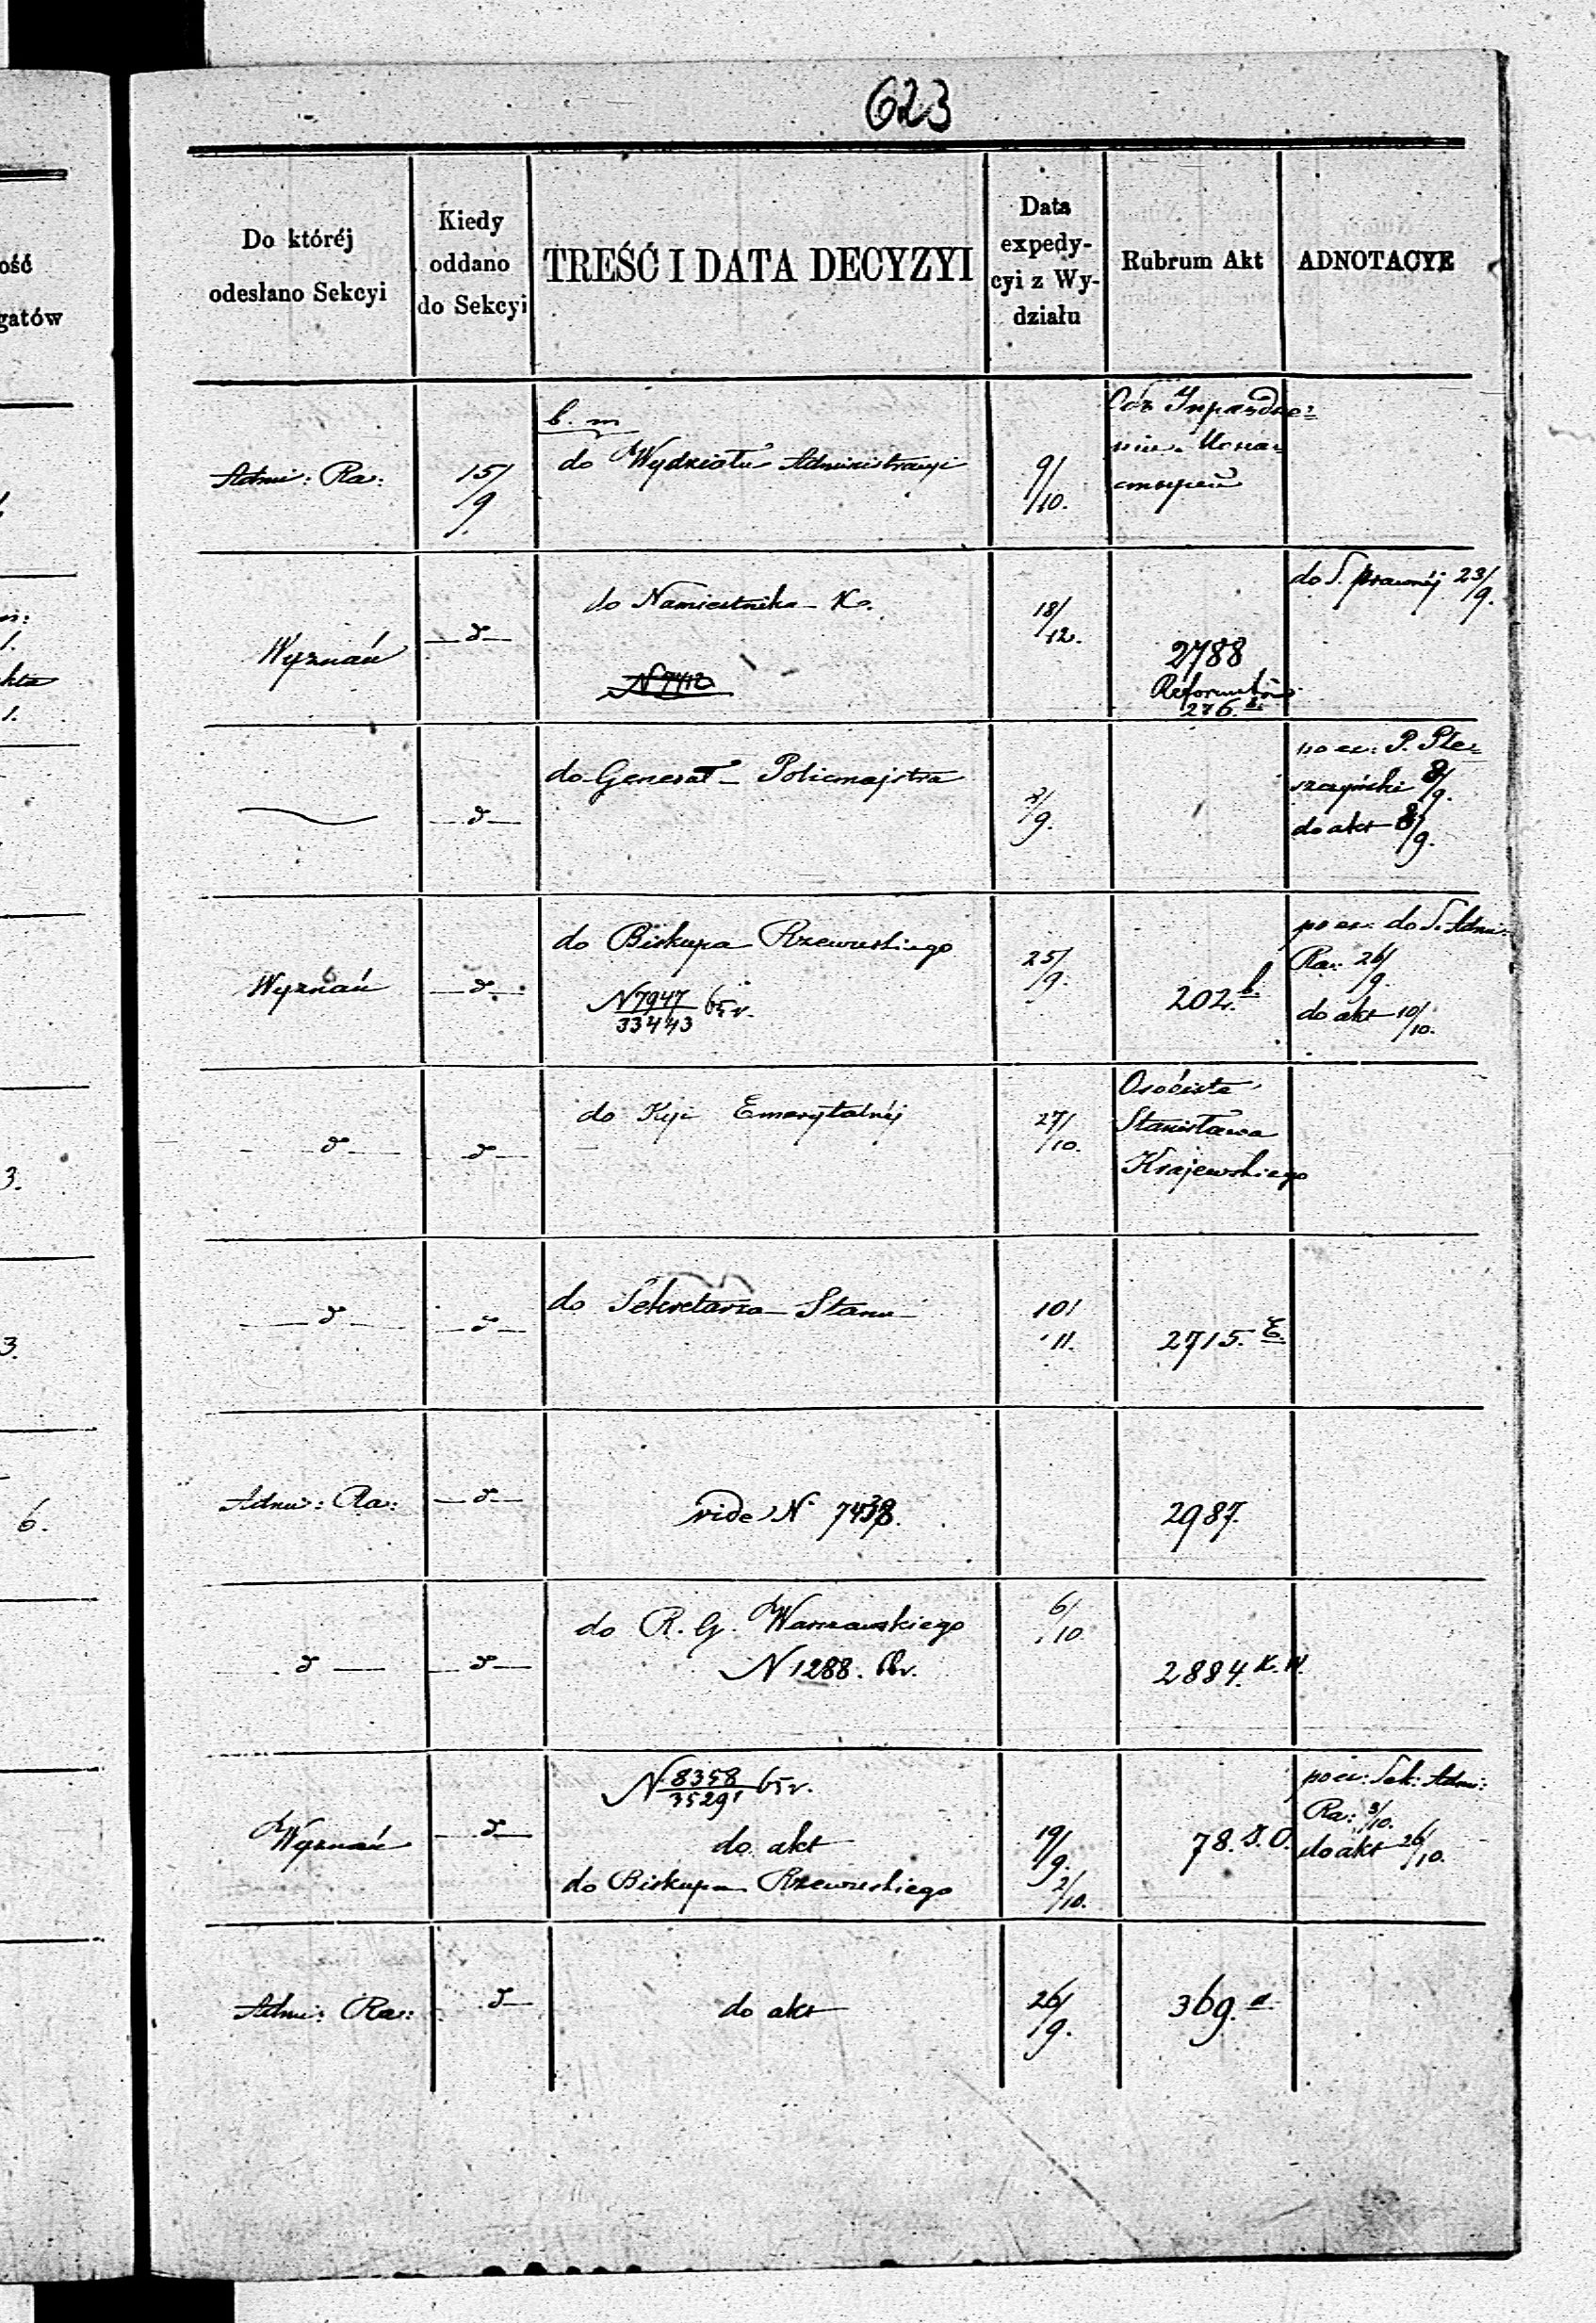 623
Do któréj
odesłano Sekcyi
Kiedy
oddano
do Sekcyi
TREŚĆ I DATA DECYZYI
Data
expedy-
cyi z Wy-
działu
Rubrum Akt
ADNOTACYE
ość
gatów
Admi: Ra:
15/9
b. m
do Wydziału Administracyi
9/10.
Wyznań
d
do Namiestnika K.
N 7412
18/12.
2788
Reformatów
276.
do S. prawnéj 23/9.
d
do Generał Policmajstra
2/9.
P. Ple=
szczyński 8/9.
do akt 8/9.
Wyznań
d
do Biskupa Rzewuskiego
N 7947/33443 65 r.
25/9.
202. b.
po ex: do S. Admi:
Ra: 26/9.
do akt 10/10.
d
d
do Kyi Emerytalnéj
27/10.
Osobiste
Stanisława
Krajewskiego
d
d
do Sekretarza Stanu
10/11.
2715. E.
Admi: Ra:
d
vide N 7438.
2987.
d
d
do R. G. Warszawskiego
N 1288.
6/10
2884. K. W.
N 8358/35291 65 r.
Wyznań
d
do akt
19/9.
78. S. O.
do Biskupa Rzewuskiego
2/10.
po ex: Sek: Admi:
Ra: 3/10.
do akt 26/10.
Admi: Ra:
d
do akt
26/9.
369. a.
3.
3.
6.